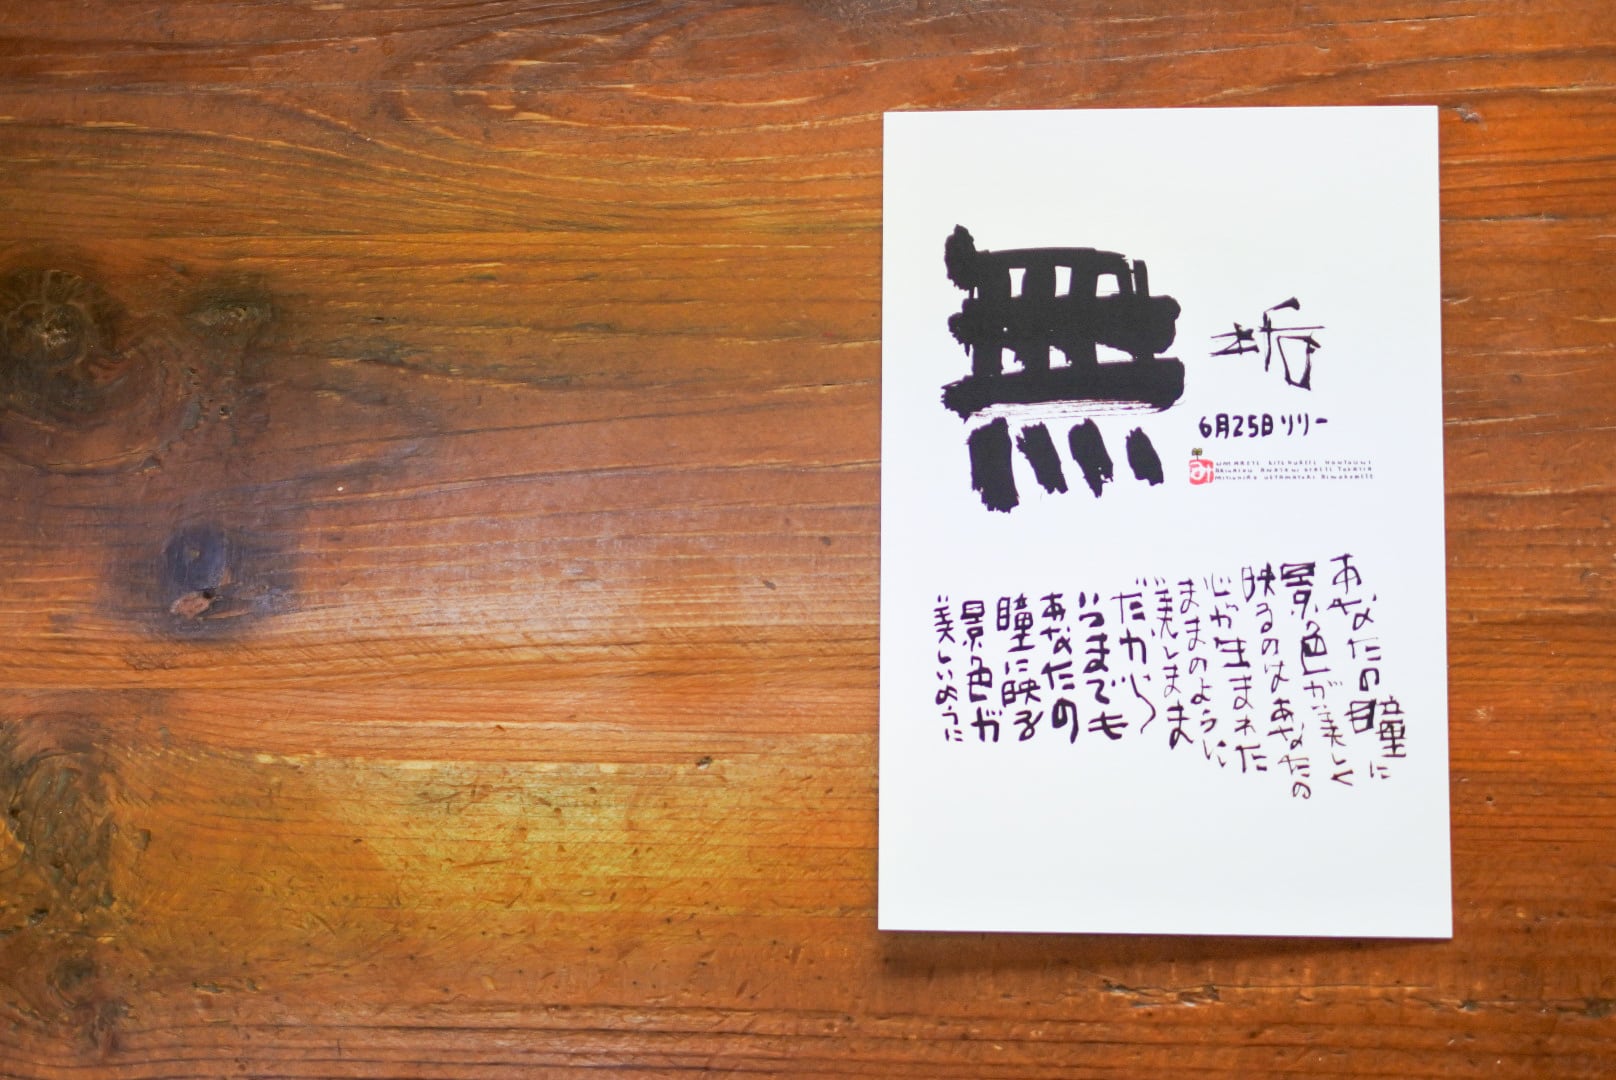 無垢
6月25日 リリー
み
UMARETE KITEKURETE HONTOUNI
あなたの瞳に
景色が美しく
映るのはあなたの
心が生まれた
ままのように
美しまま
だから
いつまでも
あなたの
瞳に映る
景色が
美しいように